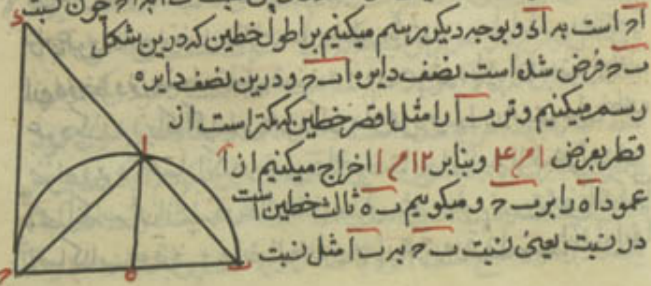 اح است به اء و بوجه دیکر رسم میکنیم بر اطول خطین که درین شکل
ب ح فرض شده است نصف دایره اب ح و درین نصف دایره
رسم میکنیم وتر ب ا را مثل اقصر خطین که کمتر است از
قطر بفرض ۱ م ۴ و بنابر ۱۲ م ۱ اخراج میکنیم از ا
عمود اه را بر ب ح و میکوییم ب ه ثالث خطین است
در نسبت یعنی نسبت ب ح به ب ا مثل نسبت
ء
ا
ح
ه
ب